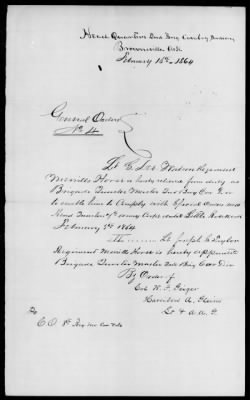 Head Quarters 2nd Brig Cavalry Division
Brownsville Ark
February 18th 1864
General Orders
No 4
Lt C. Watson Regiment
Merrills Horse is hereby relieved from duty as
Brigade Quarter Master 2nd Brig Cav Div
to enable him to comply with Special Orders
Head Quarters 7th Army Corps Little Rock Ark
February 9th 1864
II Lt Joseph H.
Regiment Merrills Horse is hereby appointed
Brigade Quarter Master 2nd Brig Cav Div
By Order of
Col W. F. Geiger
A.
Lt & A. A. G.
To
C O 1st Cav